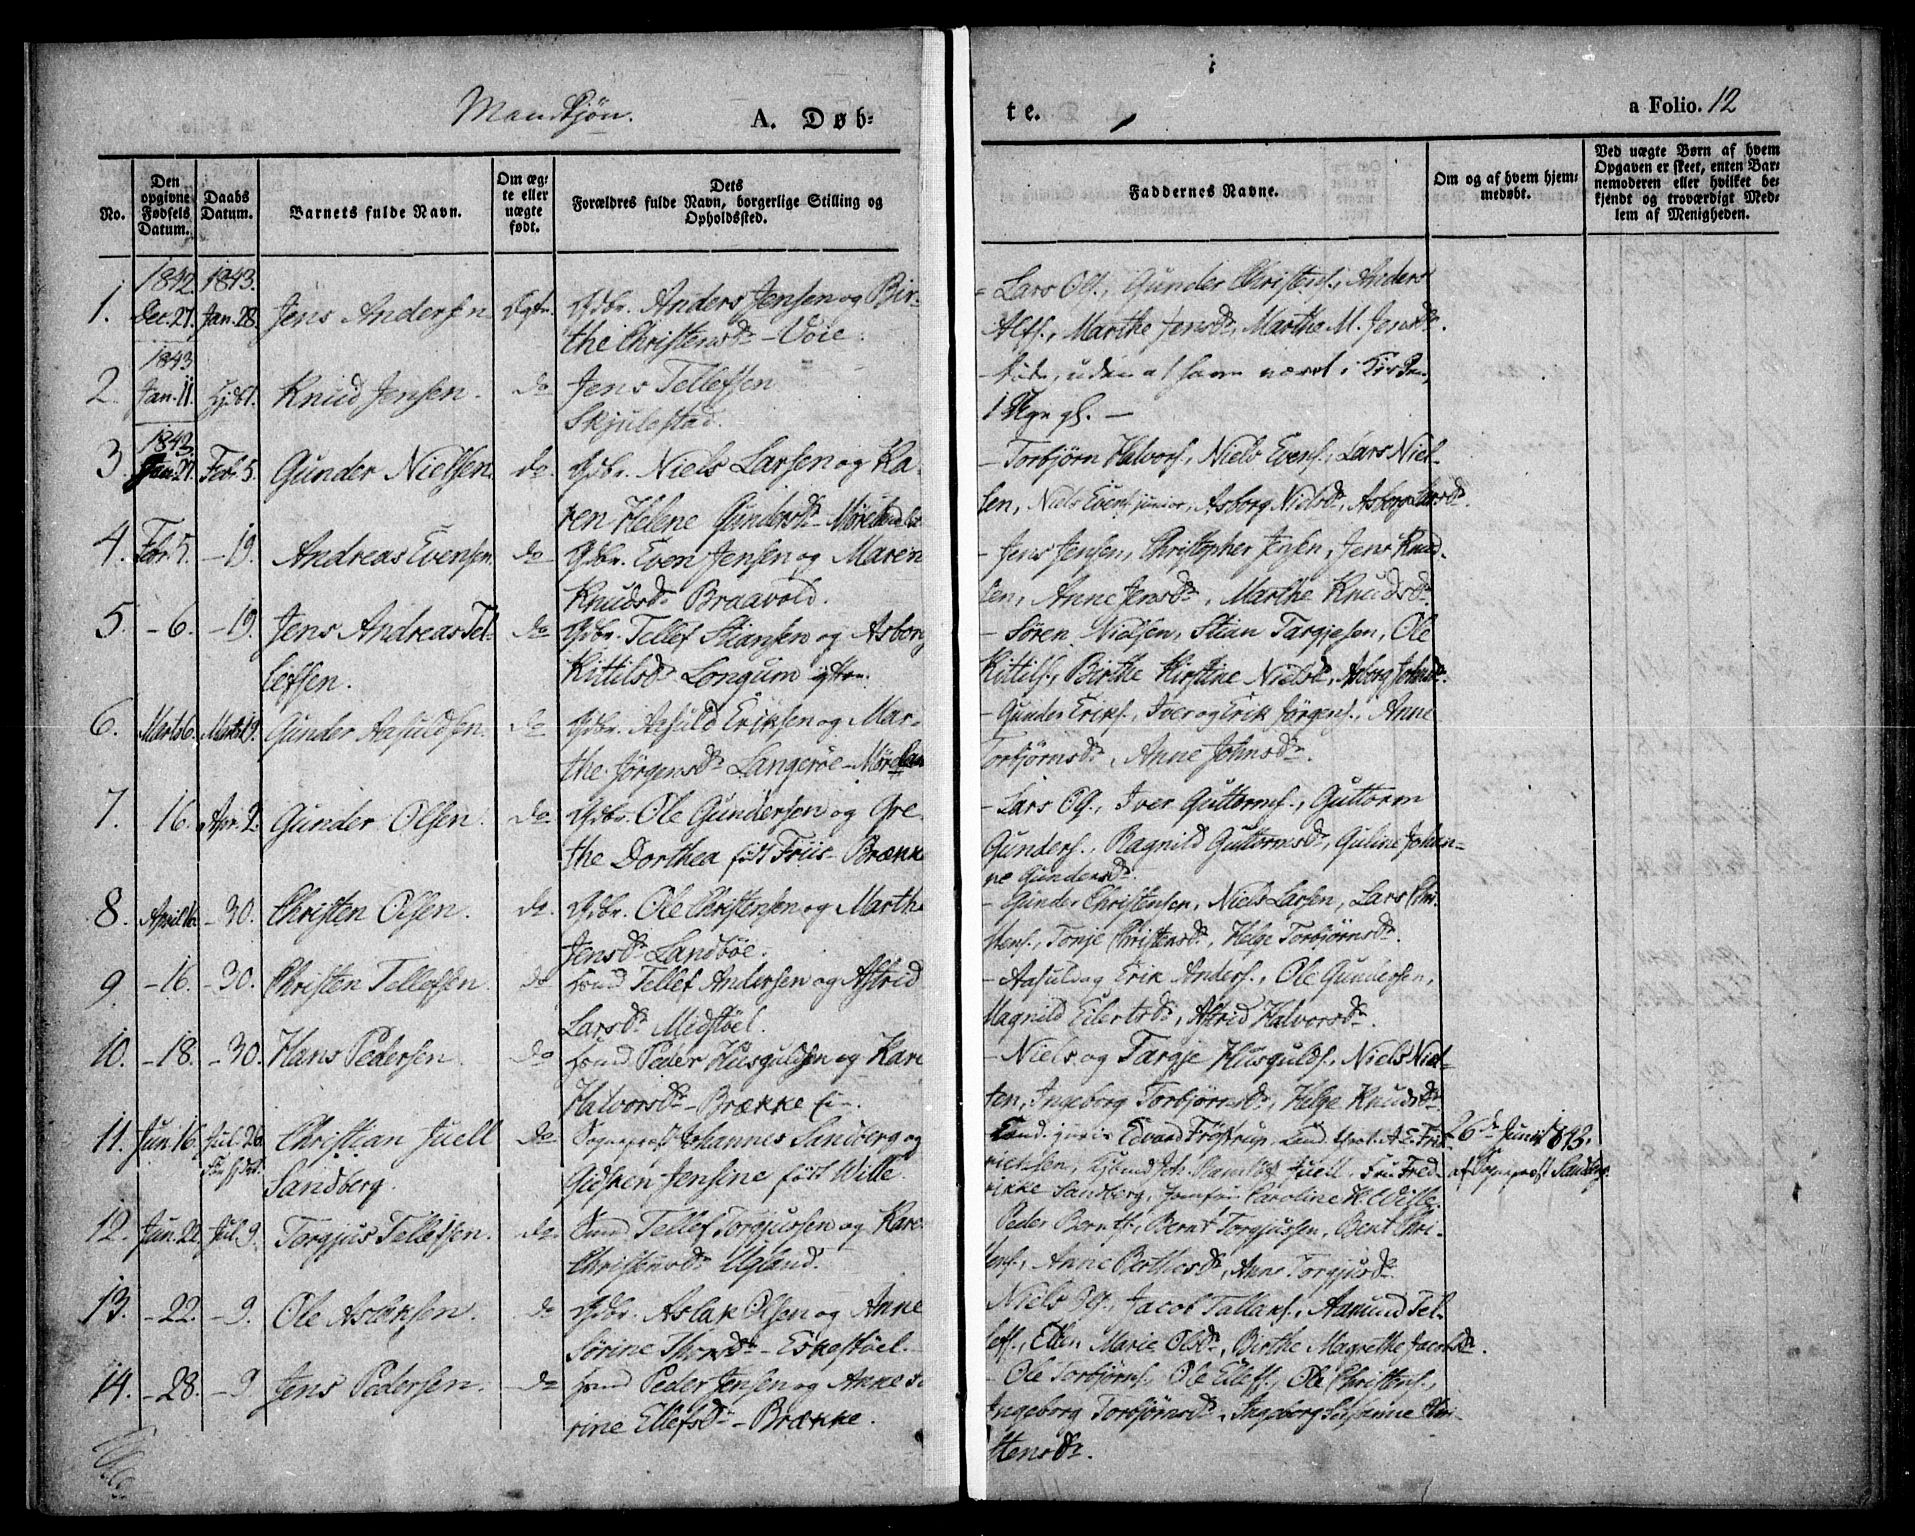 Mandkjøn.
A. Døb-
te.
a Folio. 12
No.
Den opgivne Fødsels Datum.
Daabs Datum.
Barnets fulde Navn.
Om æg-
te eller
uægte
født.
Dets
Forældres fulde Navn, borgerlige Stilling og
Opholdssted.
Faddernes Navne.
Om og af hvem hjem-
medøbt.
Ved uægte Børn af hvem
Opgaven er skeet, enten Bar-
nemoderen eller hvilket be-
kjendt og troværdigt Med-
lem af Menigheden.
1842 1843.
1. Dec. 27. Jan. 28. Jens Andersen Ægte. Gdbr. Anders Jensen og Bir-
the Christensdr - Voie.
- Lars Ols., Gunder Christens., Anders
Alfs., Marthe Jensdr, Marthe M. Jensdr.
1843
2. Jan. 11. Knud Jensen. do Jens Tellefsen
Skjulestad.
Døde, uden at have været i Kirken,
1 Uge gl. -
1843
3. Jan. 27. Febr. 5. Gunder Nielsen do. Gdbr. Niels Larsen og Ka-
ren Helene Gundersdr
- Torbjørn Halvors., Niels Evens., Lars Niel-
sen, Niels Evens. junior, Asborg Nielsdr, Asborg Larsdr.
4. Febr. 5. - 19. Andreas Evensen. do Gdbr. Even Jensen og Maren
Knudsdr Braavold.
- Jens Jensen, Christopher Jensen, Jens Knud-
sen, Anne Jensdr, Marthe Knudsdr.
5. - 6. - 19. Jens Andreas Tel-
lefsen. do Gdbr. Tellef Stiansen og Asborg
Kittilsdr Longum
- Søren Nielsen, Stian Targjesen, Ole
Kittils., Birthe Kirstine Nielsdr, Asborg Johnsdr.
6. Marts 6. Marts 19. Gunder Aasuldsen. do Gdbr. Aasuld Eriksen og Mar-
the Jørgensdr Langerøe - Møreland
- Gunder Eriks., Iver og Erik Jørgens., Anne
Torbjørnsdr, Anne Johnsdr.
7. 16. Apr. 2. Gunder Olsen. do Gdbr. Ole Gundersen og Gre-
the Dorthea født Friis - Brække
- Lars Ols., Iver Guttorms., Guttorm
Gunders., Ragnild Guttormsdr, Guline Johan-
ne Gundersdr.
8. April 16. - 30. Christen Olsen. do. Gdbr. Ole Christensen og Marthe
Jensdr Landbøe.
- Gunder Christensen, Niels Larsen, Lars Chri-
stens., Tonje Christensdr, Helge Torbjørnsdr.
9. - 16. - 30. Christen Tellefsen. do Huusmd Tellef Andersen og Astrid
Larsdr Midstøel.
- Aasuld og Erik Anders., Ole Gundersen,
Magnild Eilertsdr, Astrid Halvorsdr.
10. - 18. - 30. Hans Pedersen. do Huusmd Peder Husguldsen og Karen
Halvorsdr - Brække
- Niels og Targje Husgulds., Niels Niel-
sen, Ingeborg Torbjørnsdr, Helge Knudsdr
11. Jun. 16. Jul. 26. Christian Juell
Sandberg. do Sognepræst Johannes Sandberg og
Gidsken Jensine født Wille.
Cand. juris Edvard Frøstrup,
Juell. Fru Fred-
rikke Sandberg, Jomfru Caroline H. Wille.
26de Juni 1843.
af Sognepræst Sandberg.
12. Jun. 22. Jul. 9. Torgjus Tellefsen. do. Tellef Torgjussen og Karen
Christensdr Ugland.
Peder Bernts., Bernt Torgjussen, Bent Chri-
stens., Anne Berthesdr, Anne Torgjusdr.
13. - 22. - 9. Ole Aslaksen. do Gdbr. Aslak Olsen og Anne
Sørine Thorsdr - Eskestøel.
Niels Ols., Jacob Tallaks., Aamund Tel-
lefs., Ellen Marie Olsdr, Birthe Magrethe Jacobsdr.
14. - 28. - 9. Jens Pedersen. do Huusmd Peder Jensen og Anne Se-
rine Ellefsdr - Brække.
- Ole Torbjørns., Ole Ellefs., Ole Christens.,
Ingeborg Torbjørnsdr, Ingeborg Susanne Chri-
stensdr.